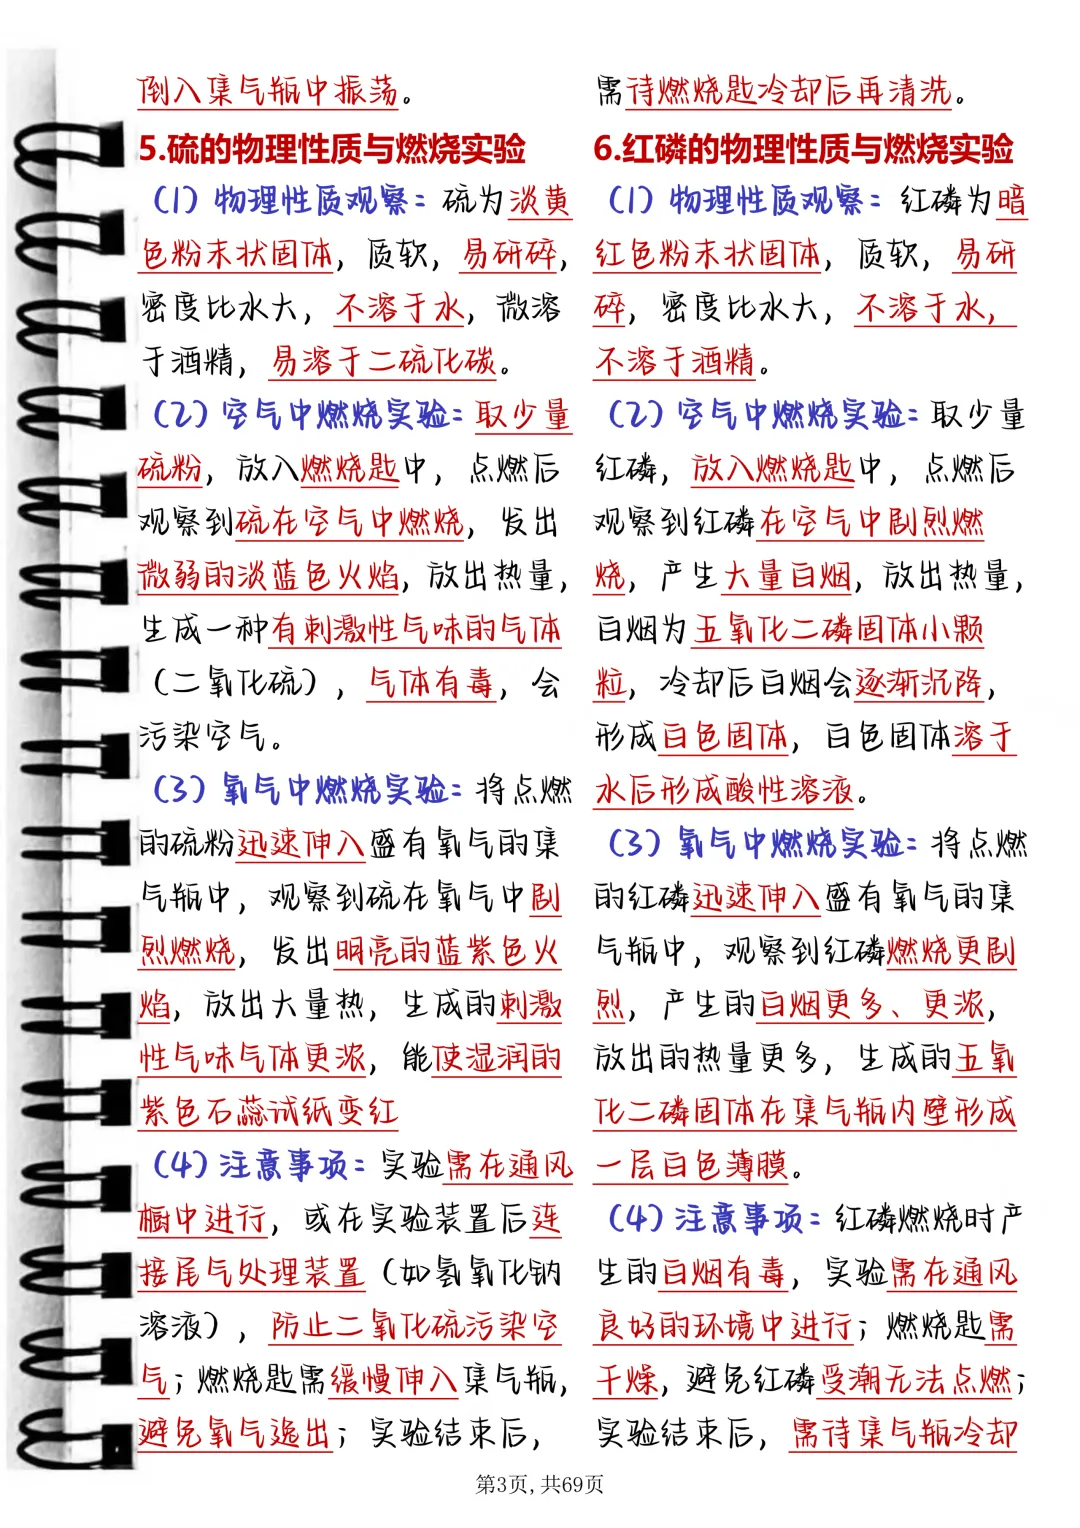 倒入集气瓶中振荡。
5.硫的物理性质与燃烧实验
（1）物理性质观察：硫为淡黄
色粉末状固体，质软，易研碎，
密度比水大，不溶于水，微溶
于酒精，易溶于二硫化碳。
（2）空气中燃烧实验：取少量
硫粉，放入燃烧匙中，点燃后
观察到硫在空气中燃烧，发出
微弱的淡蓝色火焰，放出热量，
生成一种有刺激性气味的气体
（二氧化硫），气体有毒，会
污染空气。
（3）氧气中燃烧实验：将点燃
的硫粉迅速伸入盛有氧气的集
气瓶中，观察到硫在氧气中剧
烈燃烧，发出明亮的蓝紫色火
焰，放出大量热，生成的刺激
性气味气体更浓，能使湿润的
紫色石蕊试纸变红
（4）注意事项：实验需在通风
橱中进行，或在实验装置后连
接尾气处理装置（如氢氧化钠
溶液），防止二氧化硫污染空
气；燃烧匙需缓慢伸入集气瓶，
避免氧气逸出；实验结束后，
需待燃烧匙冷却后再清洗。
6.红磷的物理性质与燃烧实验
（1）物理性质观察：红磷为暗
红色粉末状固体，质软，易研
碎，密度比水大，不溶于水，
不溶于酒精。
（2）空气中燃烧实验：取少量
红磷，放入燃烧匙中，点燃后
观察到红磷在空气中剧烈燃
烧，产生大量白烟，放出热量，
白烟为五氧化二磷固体小颗
粒，冷却后白烟会逐渐沉降，
形成白色固体，白色固体溶于
水后形成酸性溶液。
（3）氧气中燃烧实验：将点燃
的红磷迅速伸入盛有氧气的集
气瓶中，观察到红磷燃烧更剧
烈，产生的白烟更多、更浓，
放出的热量更多，生成的五氧
化二磷固体在集气瓶内壁形成
一层白色薄膜。
（4）注意事项：红磷燃烧时产
生的白烟有毒，实验需在通风
良好的环境中进行；燃烧匙需
干燥，避免红磷受潮无法点燃；
实验结束后，需待集气瓶冷却
第3页,共69页